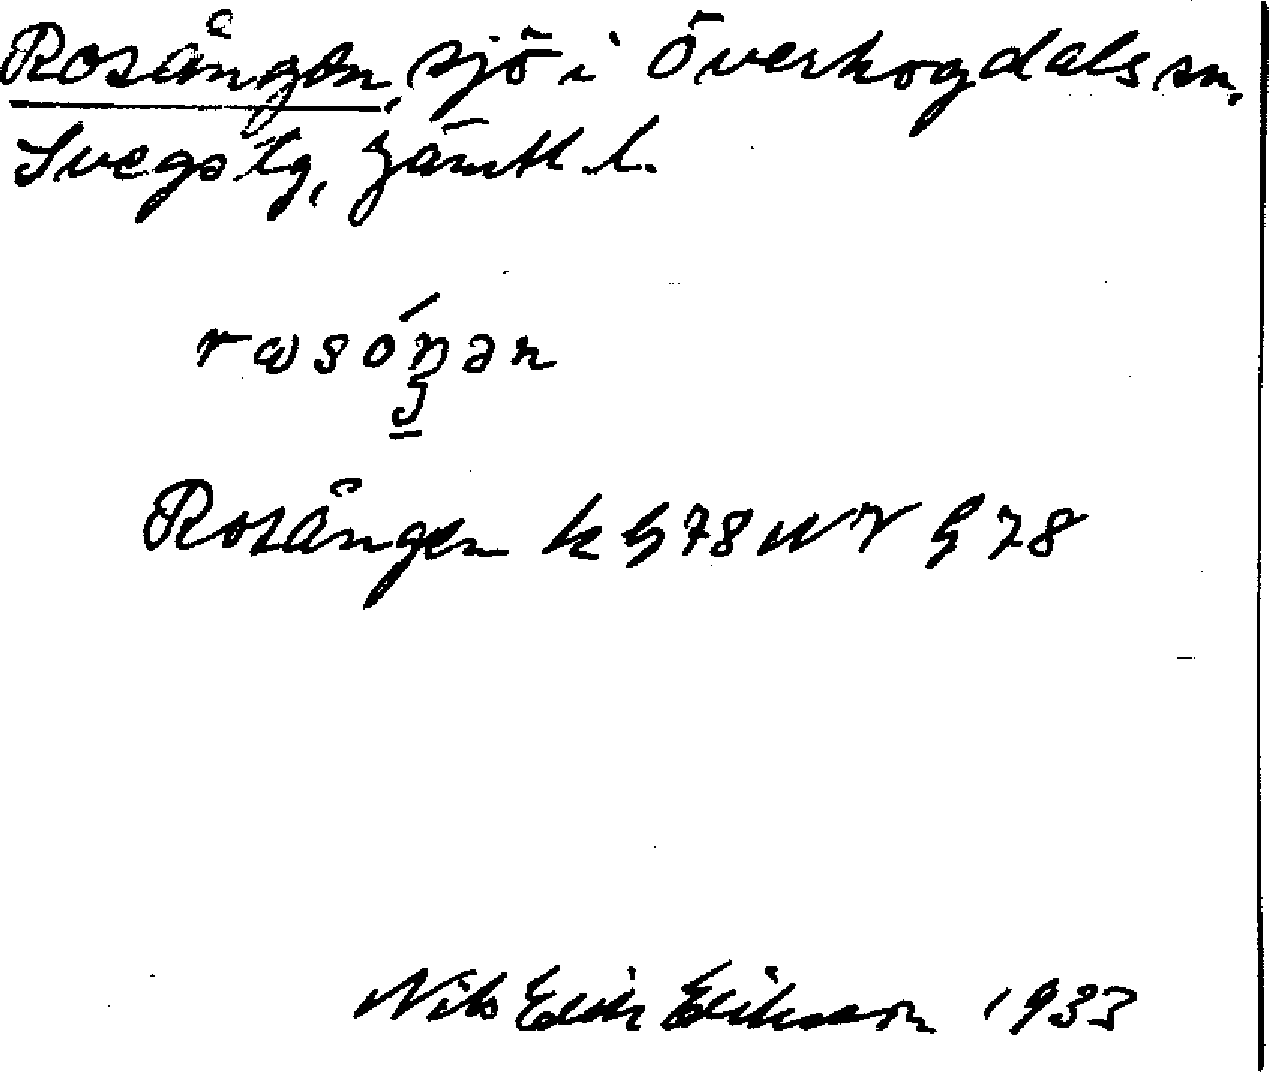 Rosången, sjö i Överhogdals sn,
Svegs tg, Jämtl. l.
rɷsóŋən
Rosången k G 78 NV G 78
Nils Erik Eriksson 1933